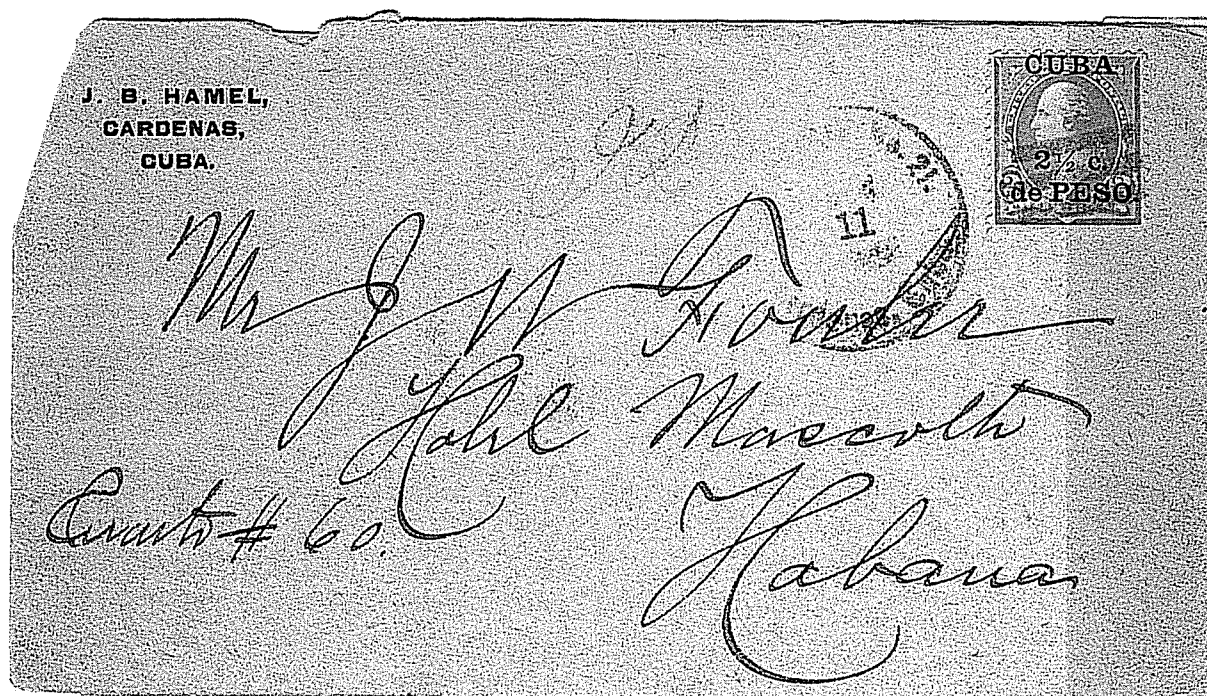 J. B. HAMEL,
CARDENAS,
CUBA.
CUBA.
2½ c.
de PESO.
11
Mr J W Fowler
Hotel Mascotte
Cuarto # 60.
Habana